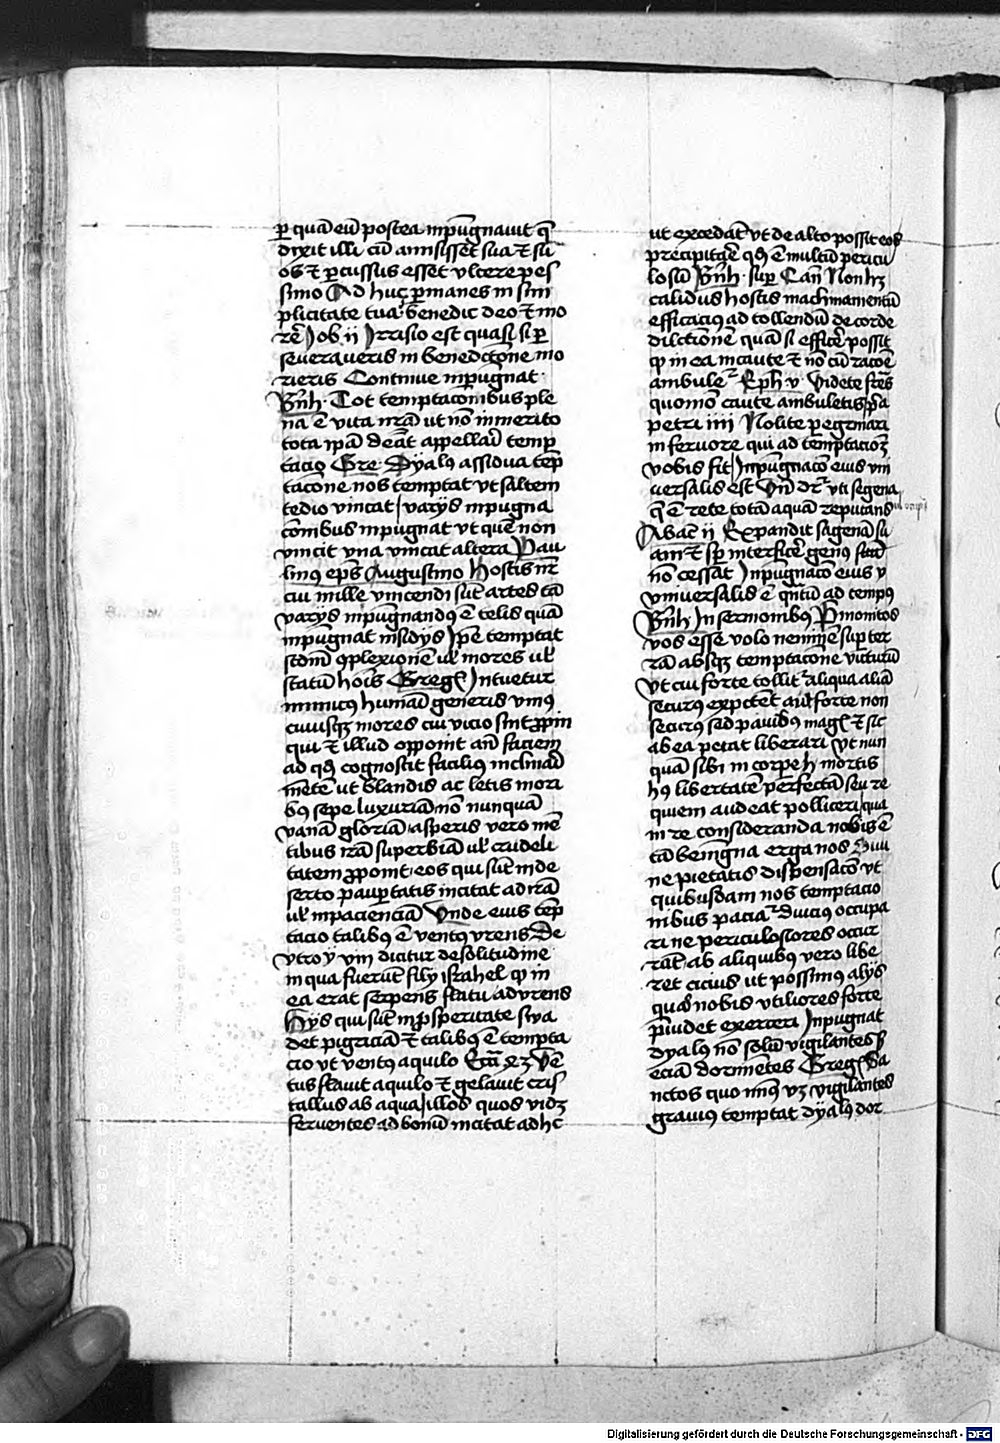 per quā eū postea inpugnauit qn̄
dixit illi cū amisisset sua et su
os et percussus esset vlcere pes
simo Ad huc permanes in sim
plicitate tua benedic deo et mo
rere Job ii Irrisio est quasi si per
seueraueris in benedictione mo
rieris Continue inpugnat
Bn̄h Tot temptacionibus ple
na ē vita nr̄a ut non inmerito
tota ip̄a debeat appellari temp
tacio Gre Dyabolus assidua temp
tacōne nos temptat vt saltem
tedio vincat varijs inpugna
cōnibus inpugnat vt quē non
vincit vna vincat altera Pau
linus ep̄s Augustino Hostis nr̄
cui mille vincendi sūt artes tā
varijs inpugnandus ē telis quā
inpugnat insidijs Ipse temptat
scdm̄ complexionē ul mores ul
statū hoīs Greg Intuetur
inimicus humani generis vnius
cuiusque mores cui vicio sint propin
qui et illud opponit an̄ faciem
ad qd̄ cognoscit facilius inclinari
mētē ut blandis ac letis mori
bus sepe luxuriā nō nunquā
vanā gloriā asperis vero mē
tibus irā superbiā ul crudeli
tatem proponit eos qui sūt in de
serto paupertatis incitat ad irā
ul inpacienciā Vnde eius temp
tacio talibus ē ventus vrens De
vtro ÿ viii dicitur de solitudine
in qua fuerūt filij israhel qd in
ea erat serpens flatu adurens
Hijs qui sūt in prosperitate sua
det pigriciā et talibus ē tempta
cio ut ventus aquilo Ecc̄i xz Vē
tus flauit aquilo et gelauit cris
tallus ab aqua Illos quos videt
feruentes ad bonū incitat ad hc
ut excedāt vt de alto possit eos
precipitare qd̄ ē multū pericu
losū Bn̄h super Can̄ Non hz
calidus hostis machinamentū
efficacius ad tollendū de corde
dilectionē quā si efficere possit
qd in ea incaute et nō cū racōe
ambuletur Eph v Videte fr̄es
quomō caute ambuletis prima
petri iiii Nolite peregrinari
in feruore qui ad temptacionem
vobis fit Inpugnacō eius vni
uersalis est Vn̄ dr̄ vti segena
que ē rete totā aquā reputans
Abac ii Expandit sagenā su
am et semper interficere genus suū
nō cessat Inpugnacō eius
vniuersalis ē quantū ad tempus
Bn̄h In sermonibus Premonitos
vos esse volo neminē super ter
rā absque temptacōne victurū
Vt cui forte tollitur aliqua aliā
securus expectet aut forte non
securus sed pauibus mag et sic
ab ea petat liberari vt nun
quā sibi in corpere h mortis
hus libertatē perfectā seu re
quiem audeat polliceri qua
in re consideranda nobis ē
tā benigna erga nos Diui
ne pietatis dispensacō vt
quibusdam nos temptacio
nibus paciatur diucius occupa
ri ne periculosiores occur
rāt ab aliquibus vero libe
ret cicius ut possimus alijs
quas nobis vtiliores forte
preuidet exerceri Inpugnat
dyabolus nō solū vigilantes s
eciā dormētes Greg Sa
nctos quo minus vz vigilantes
grauius temptat dyabolus dor
Digitalisierung gefördert durch die Deutsche Forschungsgemeinschaft - DFG